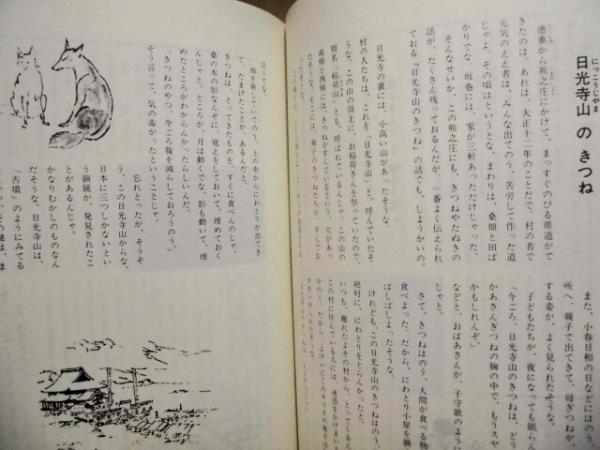 日光寺山 の きつね
にっこうじやま
徳重から熊之庄にかけて、まっすぐのびる県道がで
きたのは、あれは、大正十二年のことだで、村の若で
元気のええ者は、みんな出てのう、苦労して作った道
じゃよ。その頃はというとな、まわりは、桑畑と田ば
かりでな、坂巻には、家が三軒あっただけじゃった。
そんなせいか、この熊之庄にも、きつねやたぬきの
話が、たくさん残っておるんだが、一番よく伝えられ
ておる「日光寺山のきつね」の話でも、しようかいの。
日光寺の裏には、小高い山があったそうな。
村の人たちは、これを「日光寺山」と、呼んでいたそ
うな。この山の頂上に、お稲荷さんを祭っていたので、
別名「稲荷山」とも、呼ばれているんじゃ。この山の
また、小春日和の日などは
所へ、親子で出てきて、母ぎつねが、
する姿が、よく見られたそうな。
子どもたちが、夜になっても眠ら
「今ごろ、日光寺山のきつねは、どう
かあさんぎつねの胸の中で、もうスヤ
などと、おばあさんが、子守歌のように
じゃと。
かもしれんぞ。
さて、きつねはのう、人間が食べる物
食べよった。だから、にわとり小屋を襲
ばしばしよ、たそうな。
けれども、この日光寺山のきつねはのう、
絶対に、にわとりをとらんかったと。
いつも、離れたよその村から、とってくるん
畑を耕していてのう、土の中からにわとりが出てき
て、たまげたことが、あるんだと。
きつねは、とってきたものを、すぐに食べんのじゃ。
桑の木の影なんぞに、覚えをしておいて、埋めておく
んじゃと。ところが、月は動くでな、影も動いて、埋
めたところがわからんかったらしいんだ。
「きつねのやつ、今ごろ腹を減らしておろうのう。」
そう言って、気の毒がったということじゃ。
忘れとったが、そうそ
う、この日光寺山からな、
日本に三つしかないとい
う銅鏡が、発見されたこ
とがあるんじゃ。
かなりむかしのものなん
だそうな。日光寺山は、
「古墳」のようにみてる